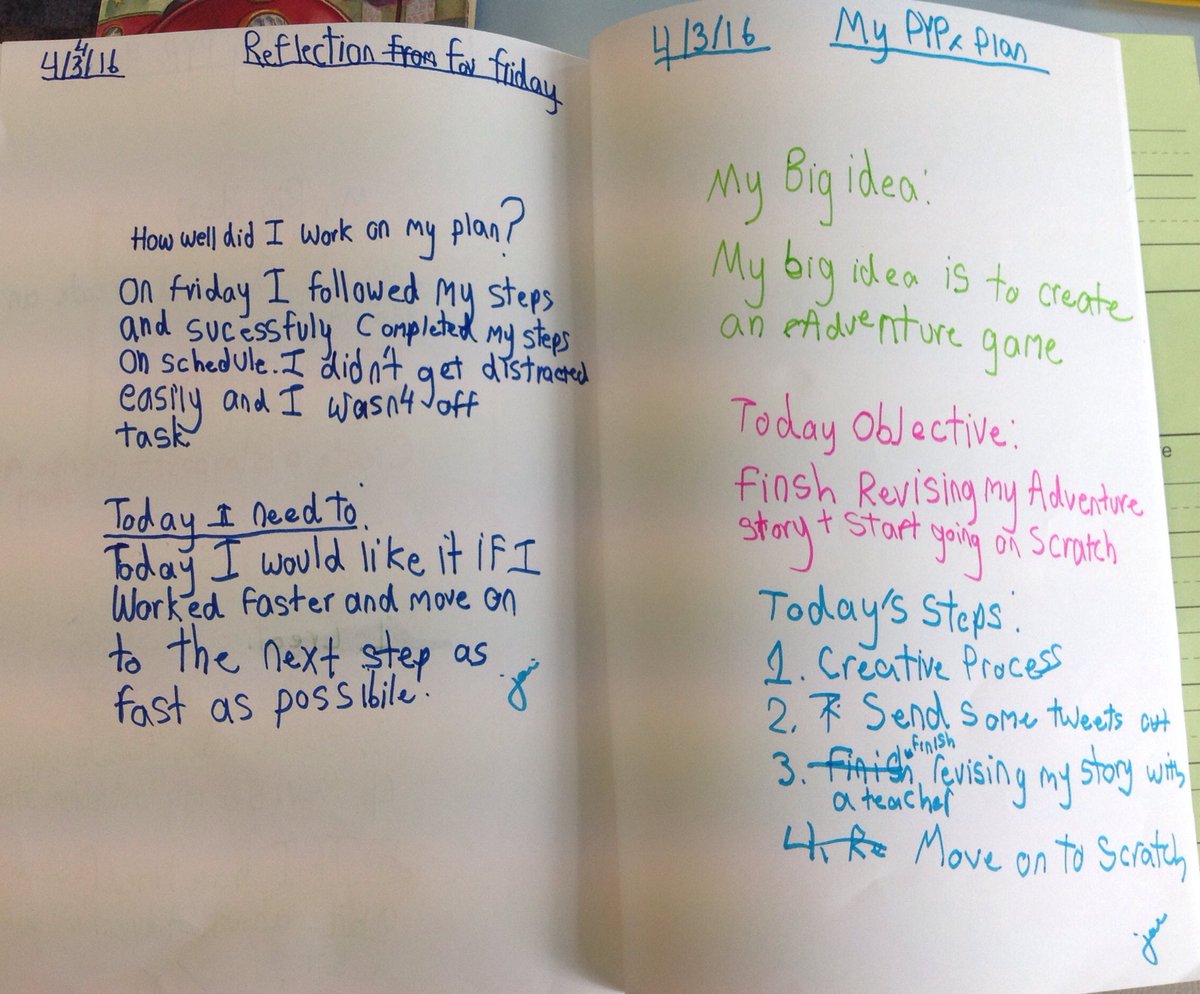 4/3/16
Reflection from for friday
How well did I work on my plan?
On friday I followed my steps
and sucessfuly completed my steps
on schedule. I didn't get distracted
easily and I wasn4 off
task
Today I need to:
Today I would like it if I
worked faster and move on
to the next step as
fast as possibile.
4/3/16 My PYPx plan
My Big idea:
My big idea is to create
an Adventure game
Today Objective:
Finsh Revising my Adventure
story + Start going on Scratch
Today's Steps:
1. Creative Process
2. Send some tweets out
3. Finish finish revising my story with
a teacher
4. Re Move on to Scratch